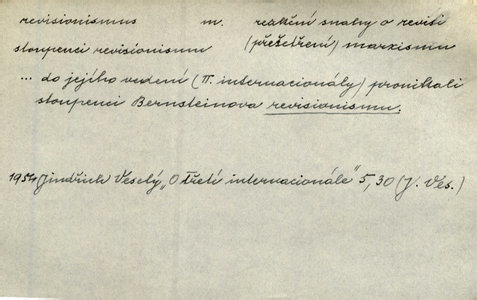 revisionismus m. reakční snahy o revisi
stoupenci revisionismu (přešetření) marxismu
... do jejího vedení (II. internacionály) pronikali
stoupenci Bernsteinova revisionismu.
1954 Jindřich Veselý „O třetí internacionále" 5,30 (J. Ves.)